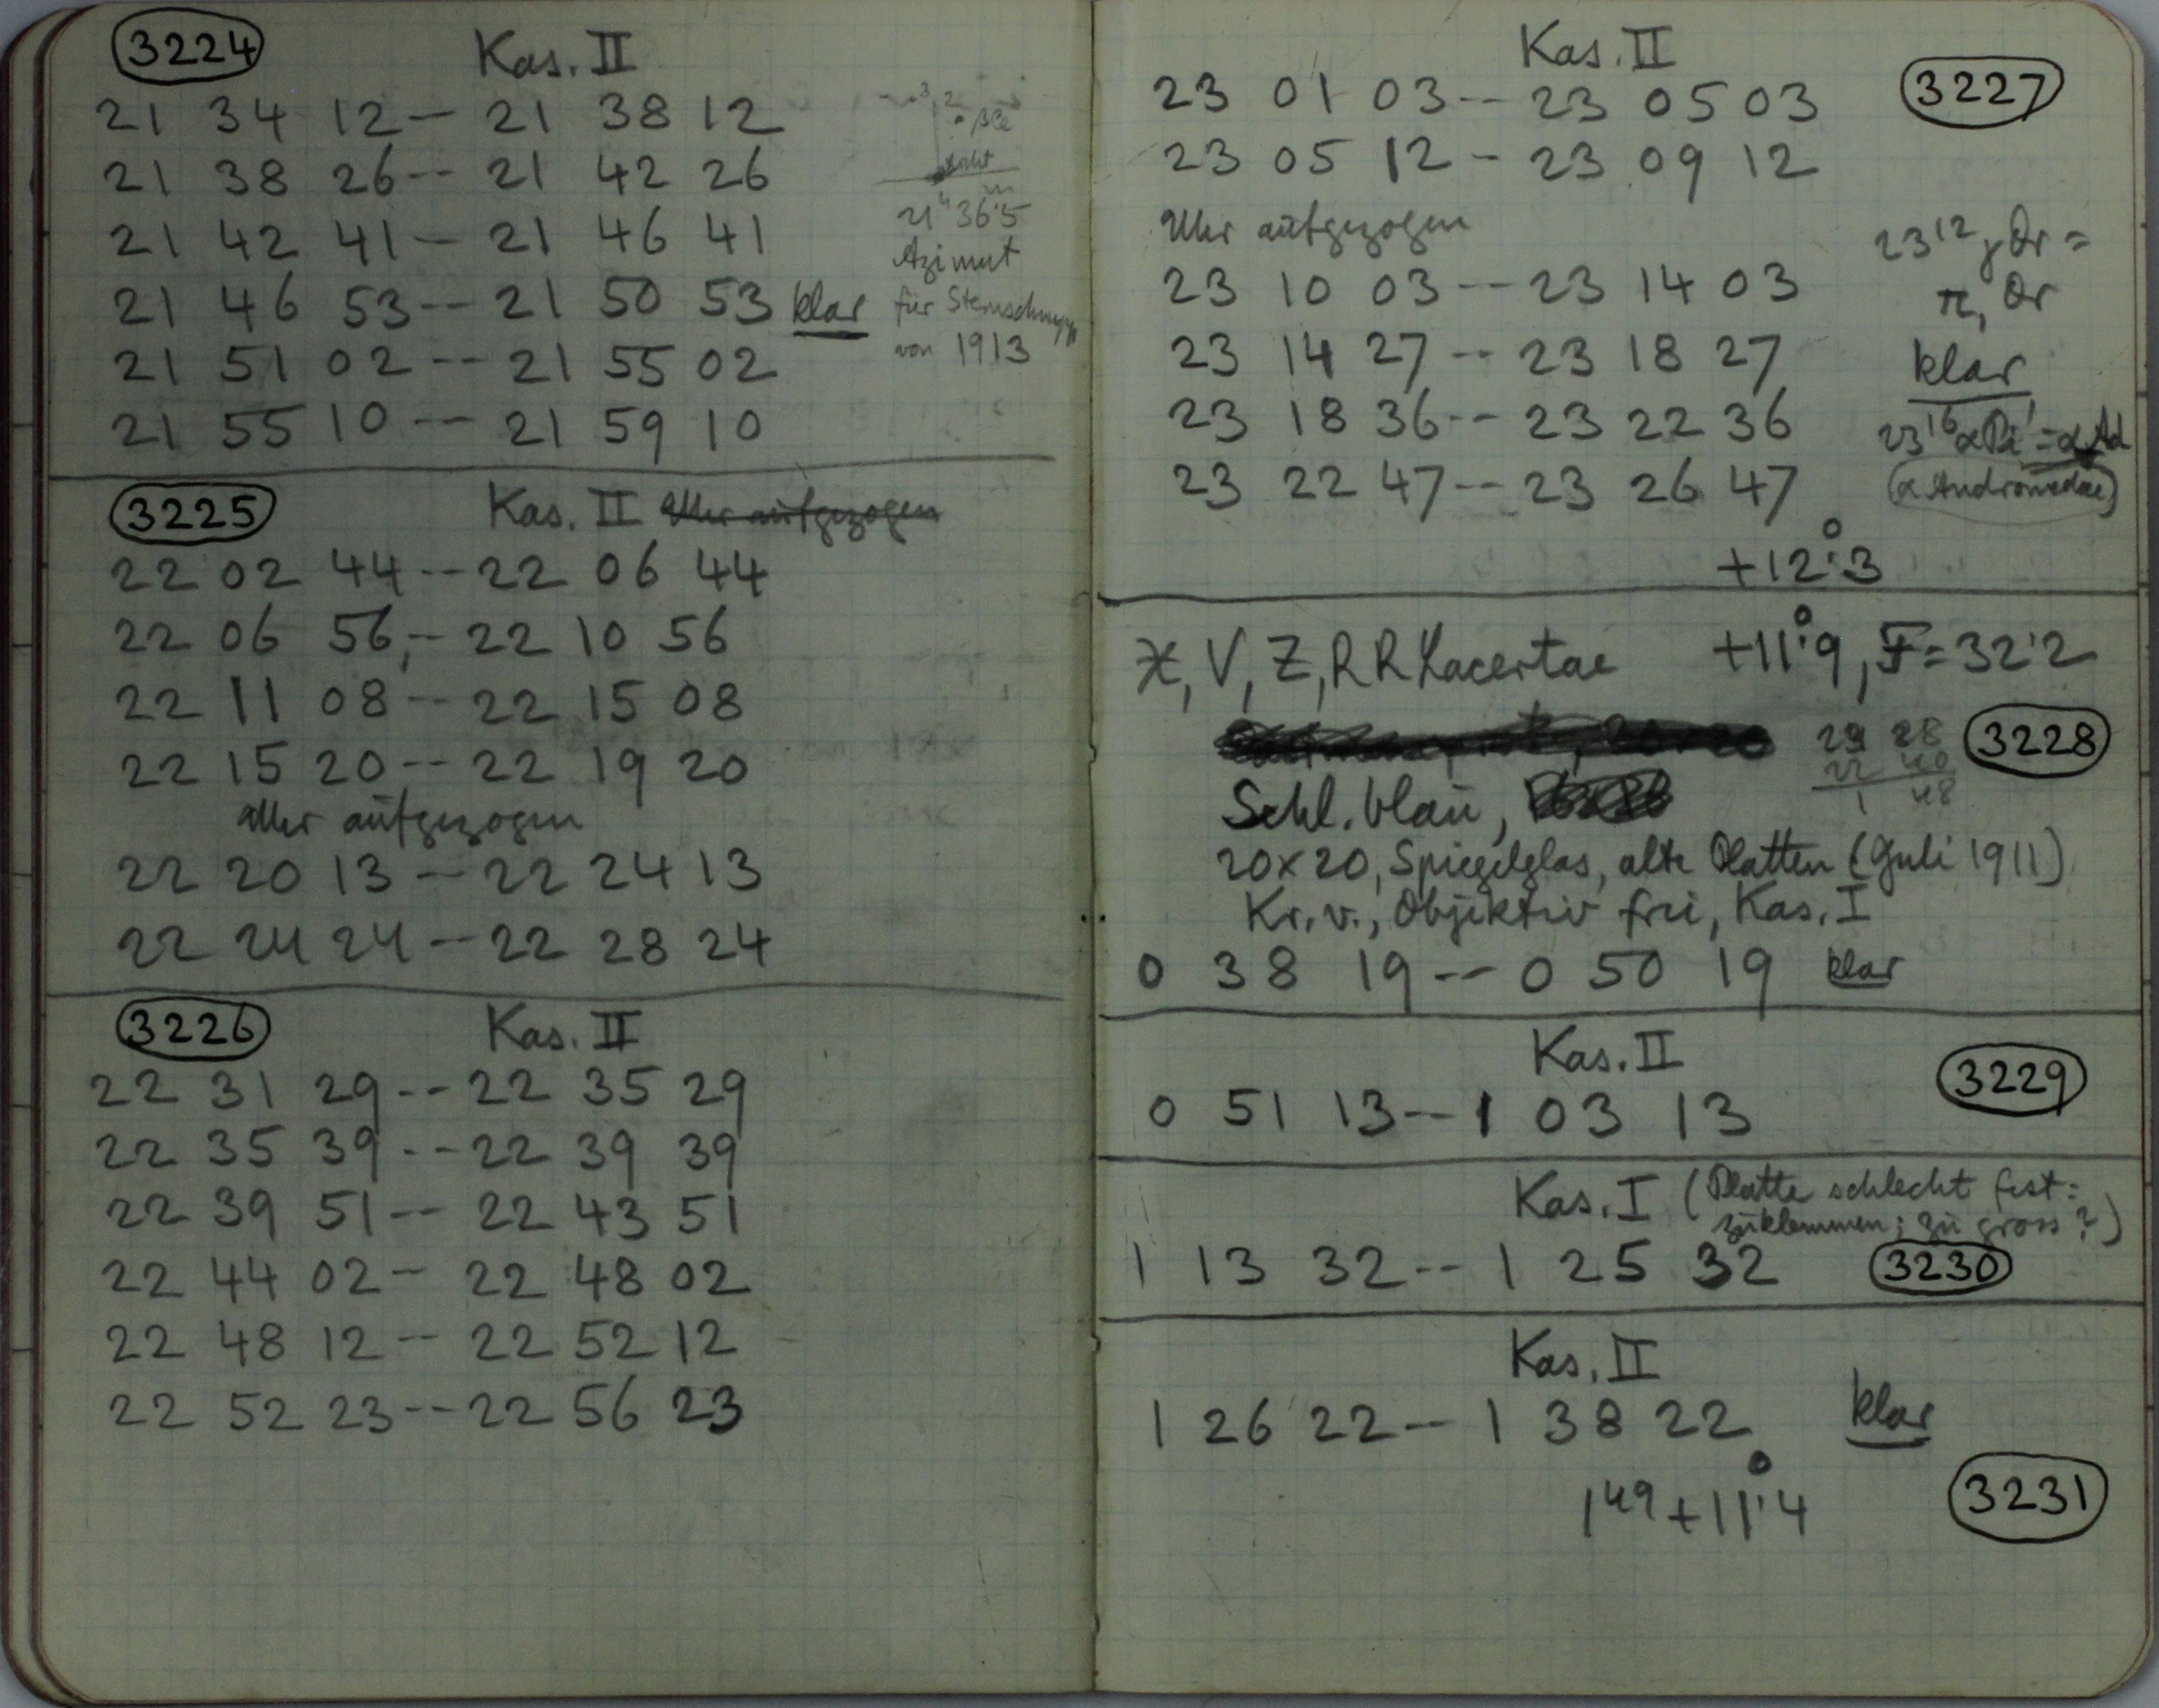 3224 Kas. II
21 34 12 -- 21 38 12
21 38 26 -- 21 42 26
21 42 41 -- 21 46 41
21 46 53 -- 21 50 53 klar
21 51 02 -- 21 55 02
21 55 10 -- 21 59 10
21h 36m.5
Azimut
für Sternschnupp
von 1913
3225 Kas. II Uhr aufgezogen
22 02 44 -- 22 06 44
22 06 56 -- 22 10 56
22 11 08 -- 22 15 08
22 15 20 -- 22 19 20
Uhr aufgezogen
22 20 13 -- 22 24 13
22 24 24 -- 22 28 24
3226 Kas. II
22 31 29 -- 22 35 29
22 35 39 -- 22 39 39
22 39 51 -- 22 43 51
22 44 02 -- 22 48 02
22 48 12 -- 22 52 12
22 52 23 -- 22 56 23
Kas. II 3227
23 01 03 -- 23 05 03
23 05 12 -- 23 09 12
Uhr aufgezogen
23 10 03 -- 23 14 03
23 14 27 -- 23 18 27
23 18 36 -- 23 22 36
23 22 47 -- 23 26 47
+12°.3
23 12 γ Or =
π, Or
klar
23 16
(α Andromedae)
V, Z, RR Lacertae +11°.9, F = 32.2
3228
Schl. blau,
20 x 20, Spiegelglas, alte Platten (Juli 1911)
Kr. v., Objektiv frei, Kas. I
0 38 19 -- 0 50 19 klar
Kas. II
3229
0 51 13 -- 1 03 13
Kas. I (Platte schlecht fest=
zuklemmen; zu gross?)
1 13 32 -- 1 25 32 3230
Kas. II
1 26 22 -- 1 38 22 klar
1 49 + 11°.4
3231